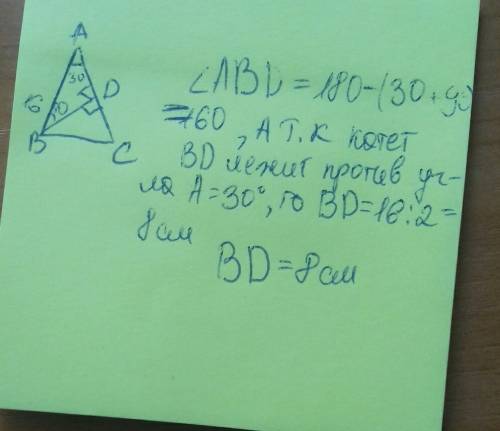 A
30
D
16
B
C
∠ABD = 180-(30+90)
=60, А т.к катет
BD лежит против уг-
ла A=30°, то BD=16:2=
8см
BD=8см